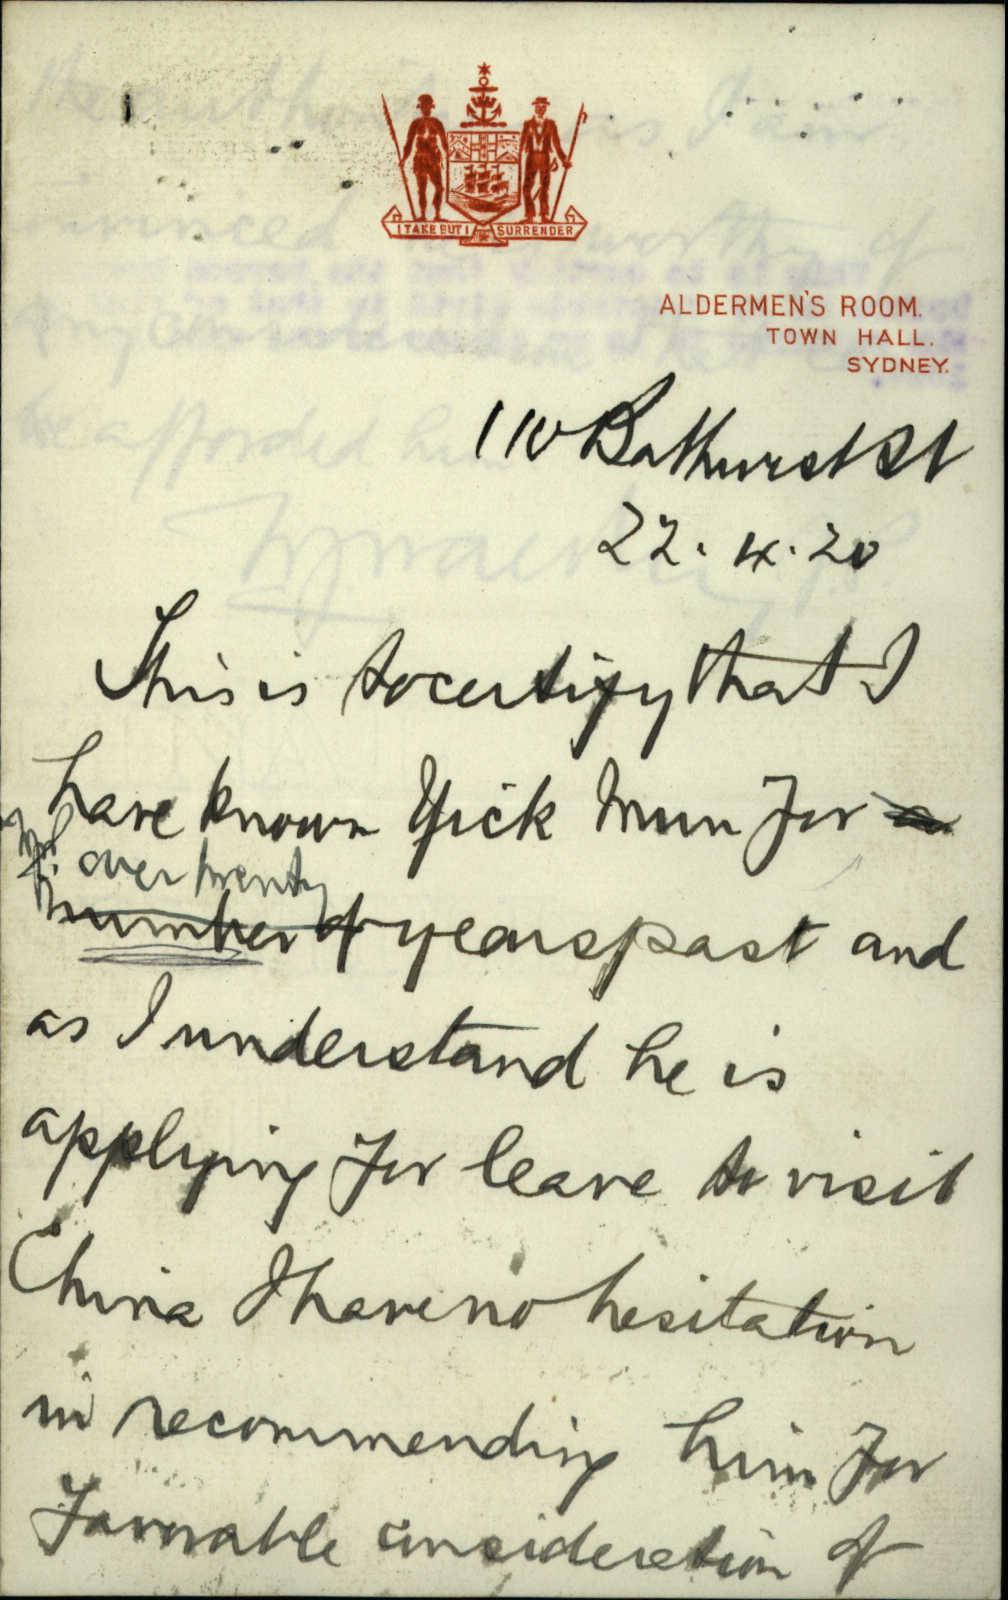 I TAKE BUT I SURRENDER
ALDERMEN'S ROOM.
TOWN HALL.
SYDNEY.
110 Bathurst St
22. 4. 20
This is to certify that I
have known Yick Mun for a
over twenty
number of years past and
as I understand he is
applying for leave to visit
China I have no hesitation
in recommending him for
favorable consideration of